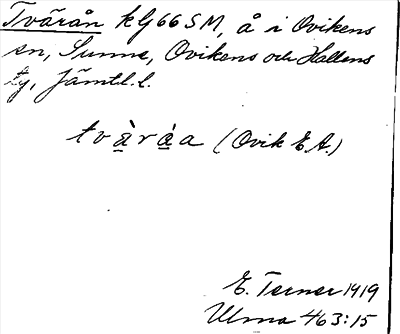 Tvärån kG66SM, å i Ovikens
sn, Sunne, Ovikens och Hallens
tg, Jämtl. l.
tvą̀rą́a (Ovik E.A.)
E. Terner 1919
Ulma 463:15